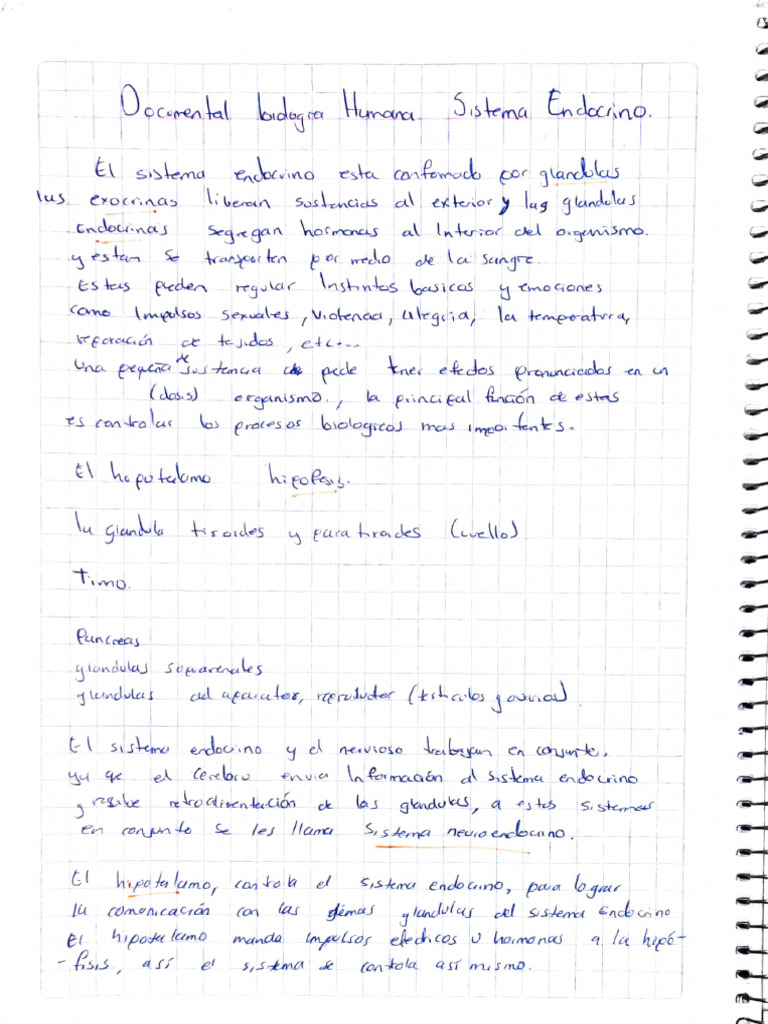 Documental biologia Humana. Sistema Endocrino.
El sistema endocrino esta conformado por glandulas
las exocrinas liberan sustancias al exterior y las glandulas
Endocrinas segregan hormonas al Interior del organismo.
y estan se transporten por medio de la sangre.
Estas pueden regular Instintos basicos y emociones
como Impulsos sexuales, violencia, alegria, la temperatura,
reparación de tejidos, etc...
Una pequeña de sustancia puede tener efectos pronunciados en un
(dosis) organismo., la principal función de estas
es controlar los procesos biologicos mas importentes.
El hopotalamo hipofisis.
la glandula tiroides y paratiroides (cuello)
Timo.
Pancreas
glandulas suprarenales
glandulas del aparator, reproductor (testiculos y ovarios)
El sistema endocrino y el nervioso trabajan en conjunto,
ya que el cerebro envia Información al sistema endocrino
y recibe retroalimentación de las glandulas, a estos sistemas
en conjunto se les llama Sistema neuroendocrino.
El hipotalamo, controla el sistema endocrino, para lograr
la comunicación con las demas glandulas del sistema Endocrino
El hipotalamo manda impulsos electicos u hormonas a la hipó-
-fisis, así el sistema se controla así mismo.